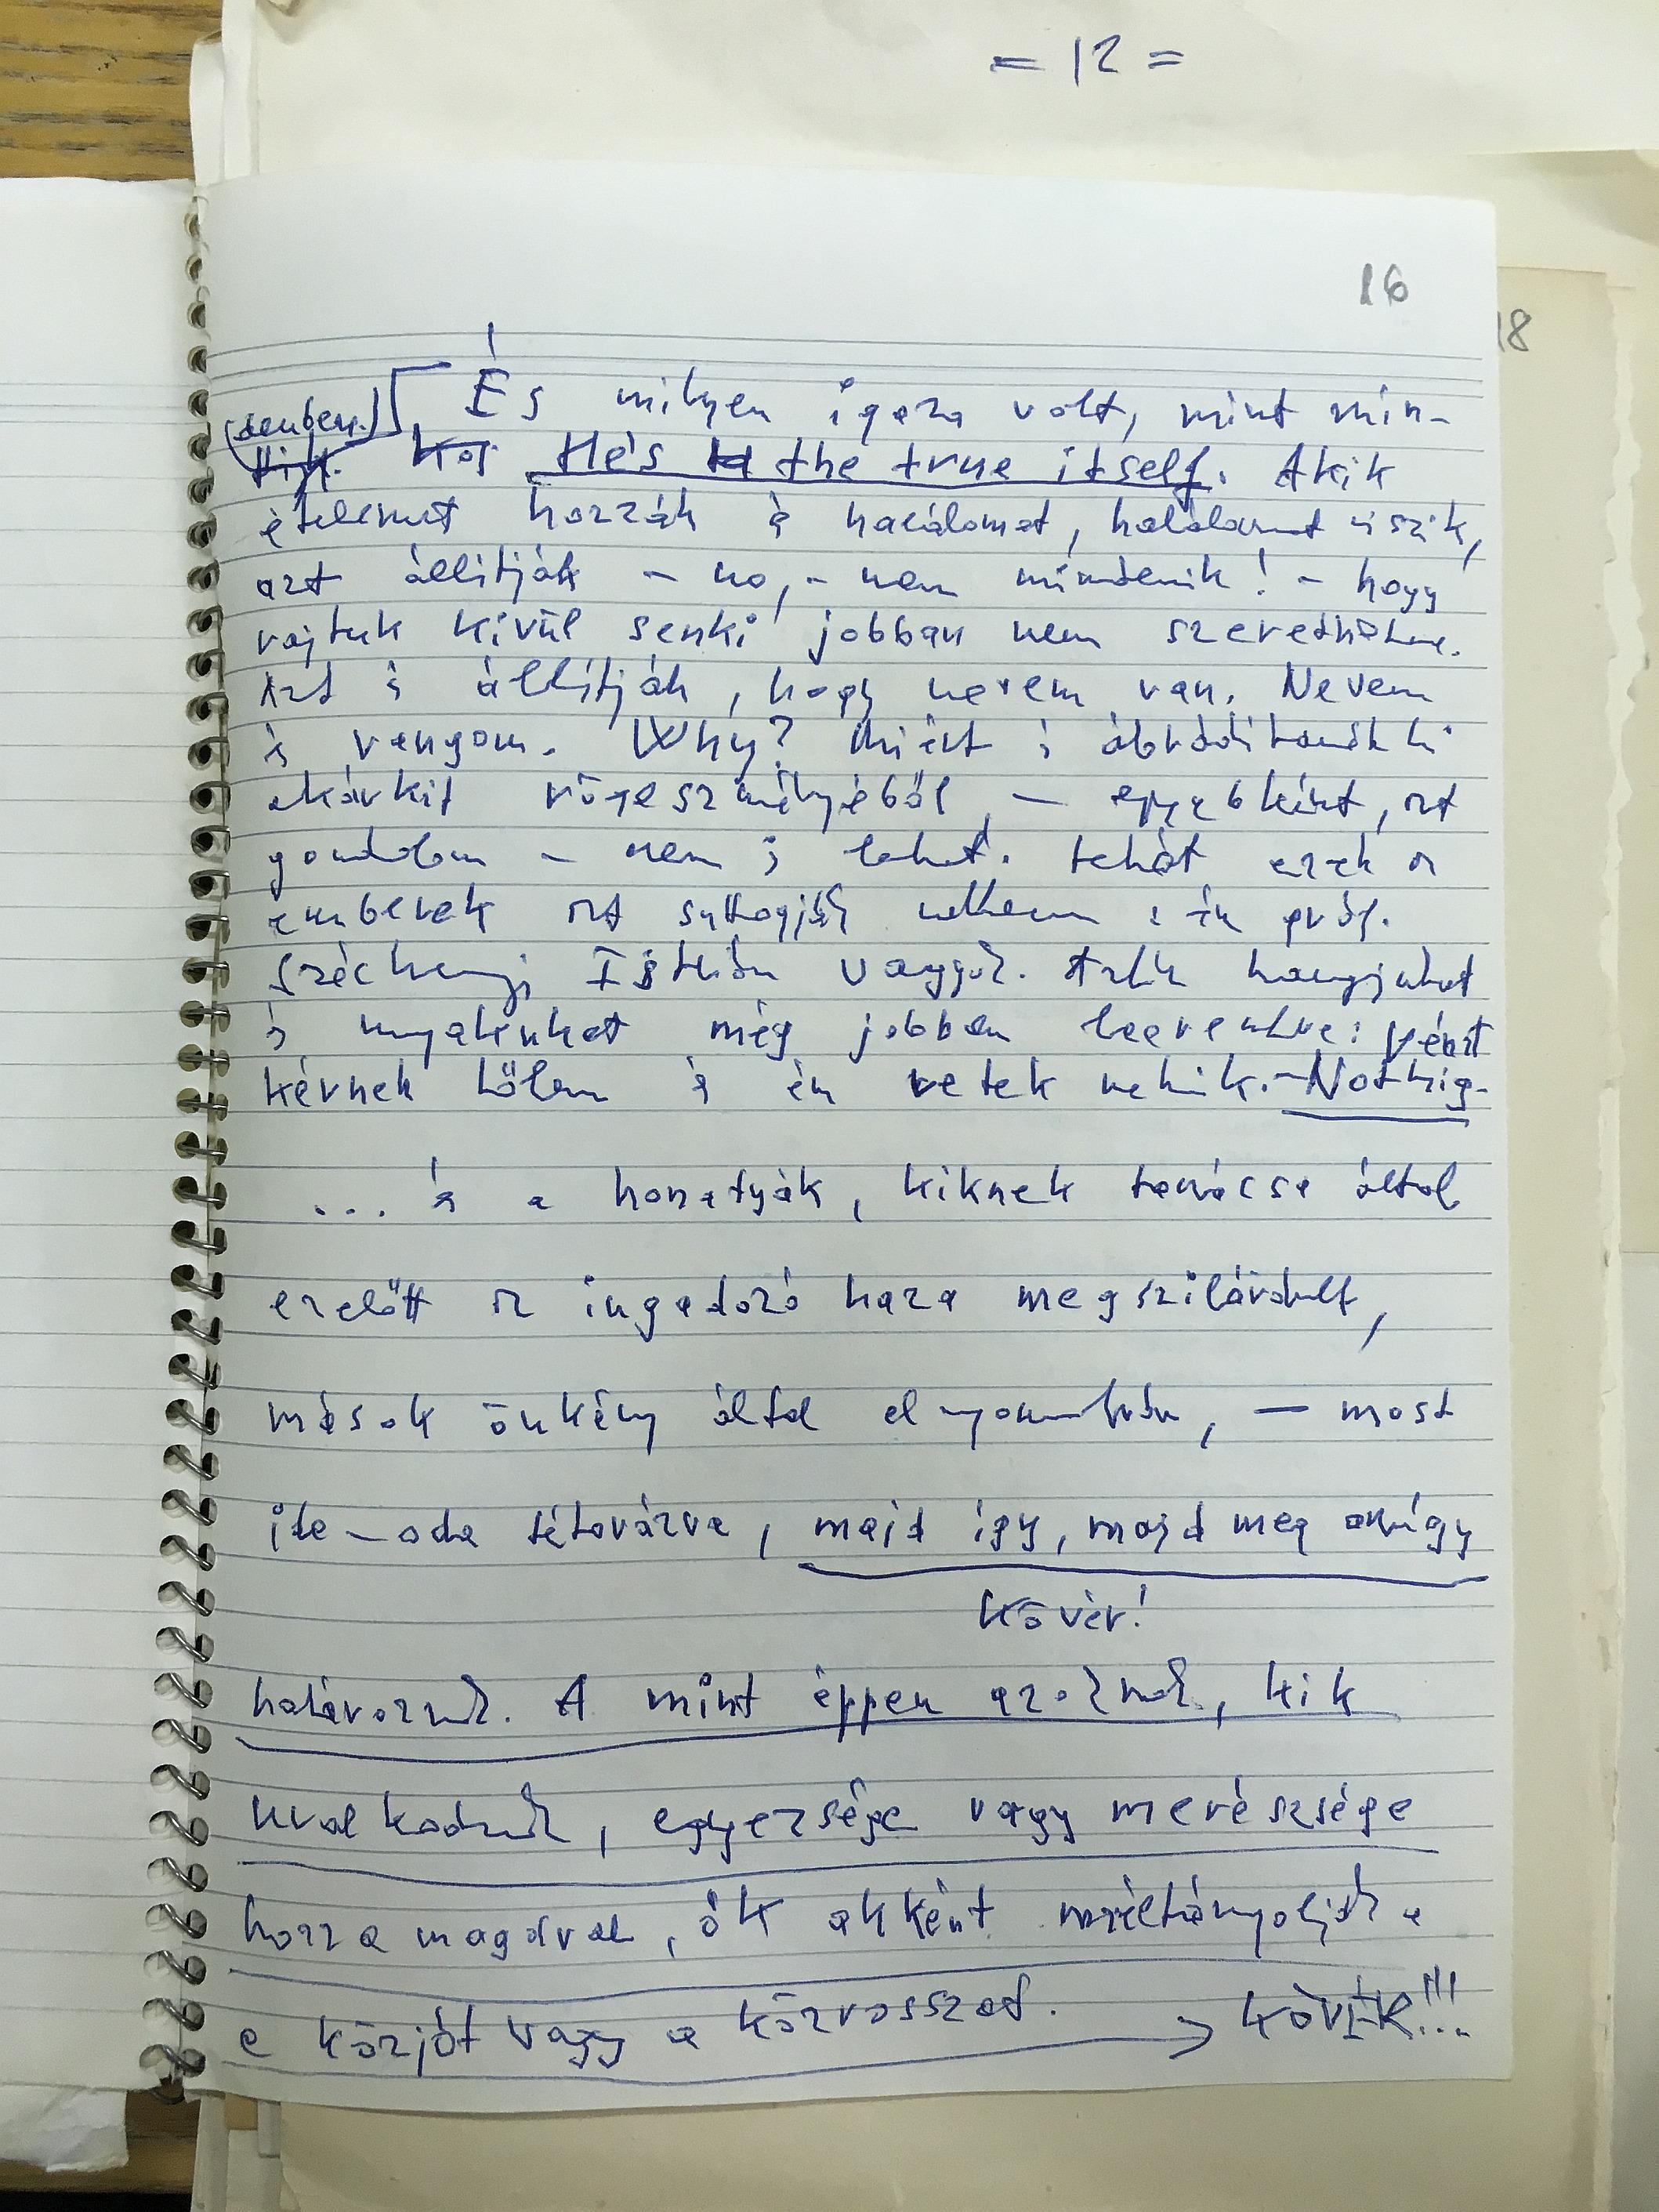 = 12 =
16
18
És milyen igaza volt, mint min-
He's the true itself. Akik
ételemet hozzák és halálomat, halálomat iszik,
azt állítják – no, – nem mindenik! – hogy
rajtuk kívül senki jobban nem szeret
Azt is állítják, hogy nevem van. Nevem
is vangom. Why? Miért is ábrándítanók ki
akárkit rögeszméjéből, – egyébként, azt
gondolom – nem is lehet. Tehát ezek az
emberek azt suttogják nekem: én gróf.
Széchenyi István vagyok. Aztán hangjukat
is nyakukat még jobban leeresztve: pénzt
kérnek tőlem és én vetek nekik. – Nothig-
... és a honatyák, kiknek tanácsa által
ezelőtt az ingadozó haza megszilárdult,
mások önkény által elnyomatván, – most
ide-oda tétovázva, majd így, majd meg amúgy
Kövér!
határoznak. A mint éppen azoknak, kik
uralkodnak, egyezsége vagy merészsége
hozza magával, ők akként méltányolják a
a közjót vagy a közrosszat. → KÖVÉR!!!